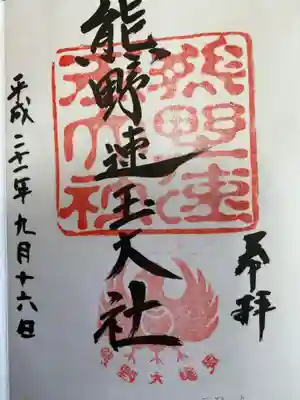 奉拝
熊野速玉大社
熊野速玉大社
平成二十一年九月十六日